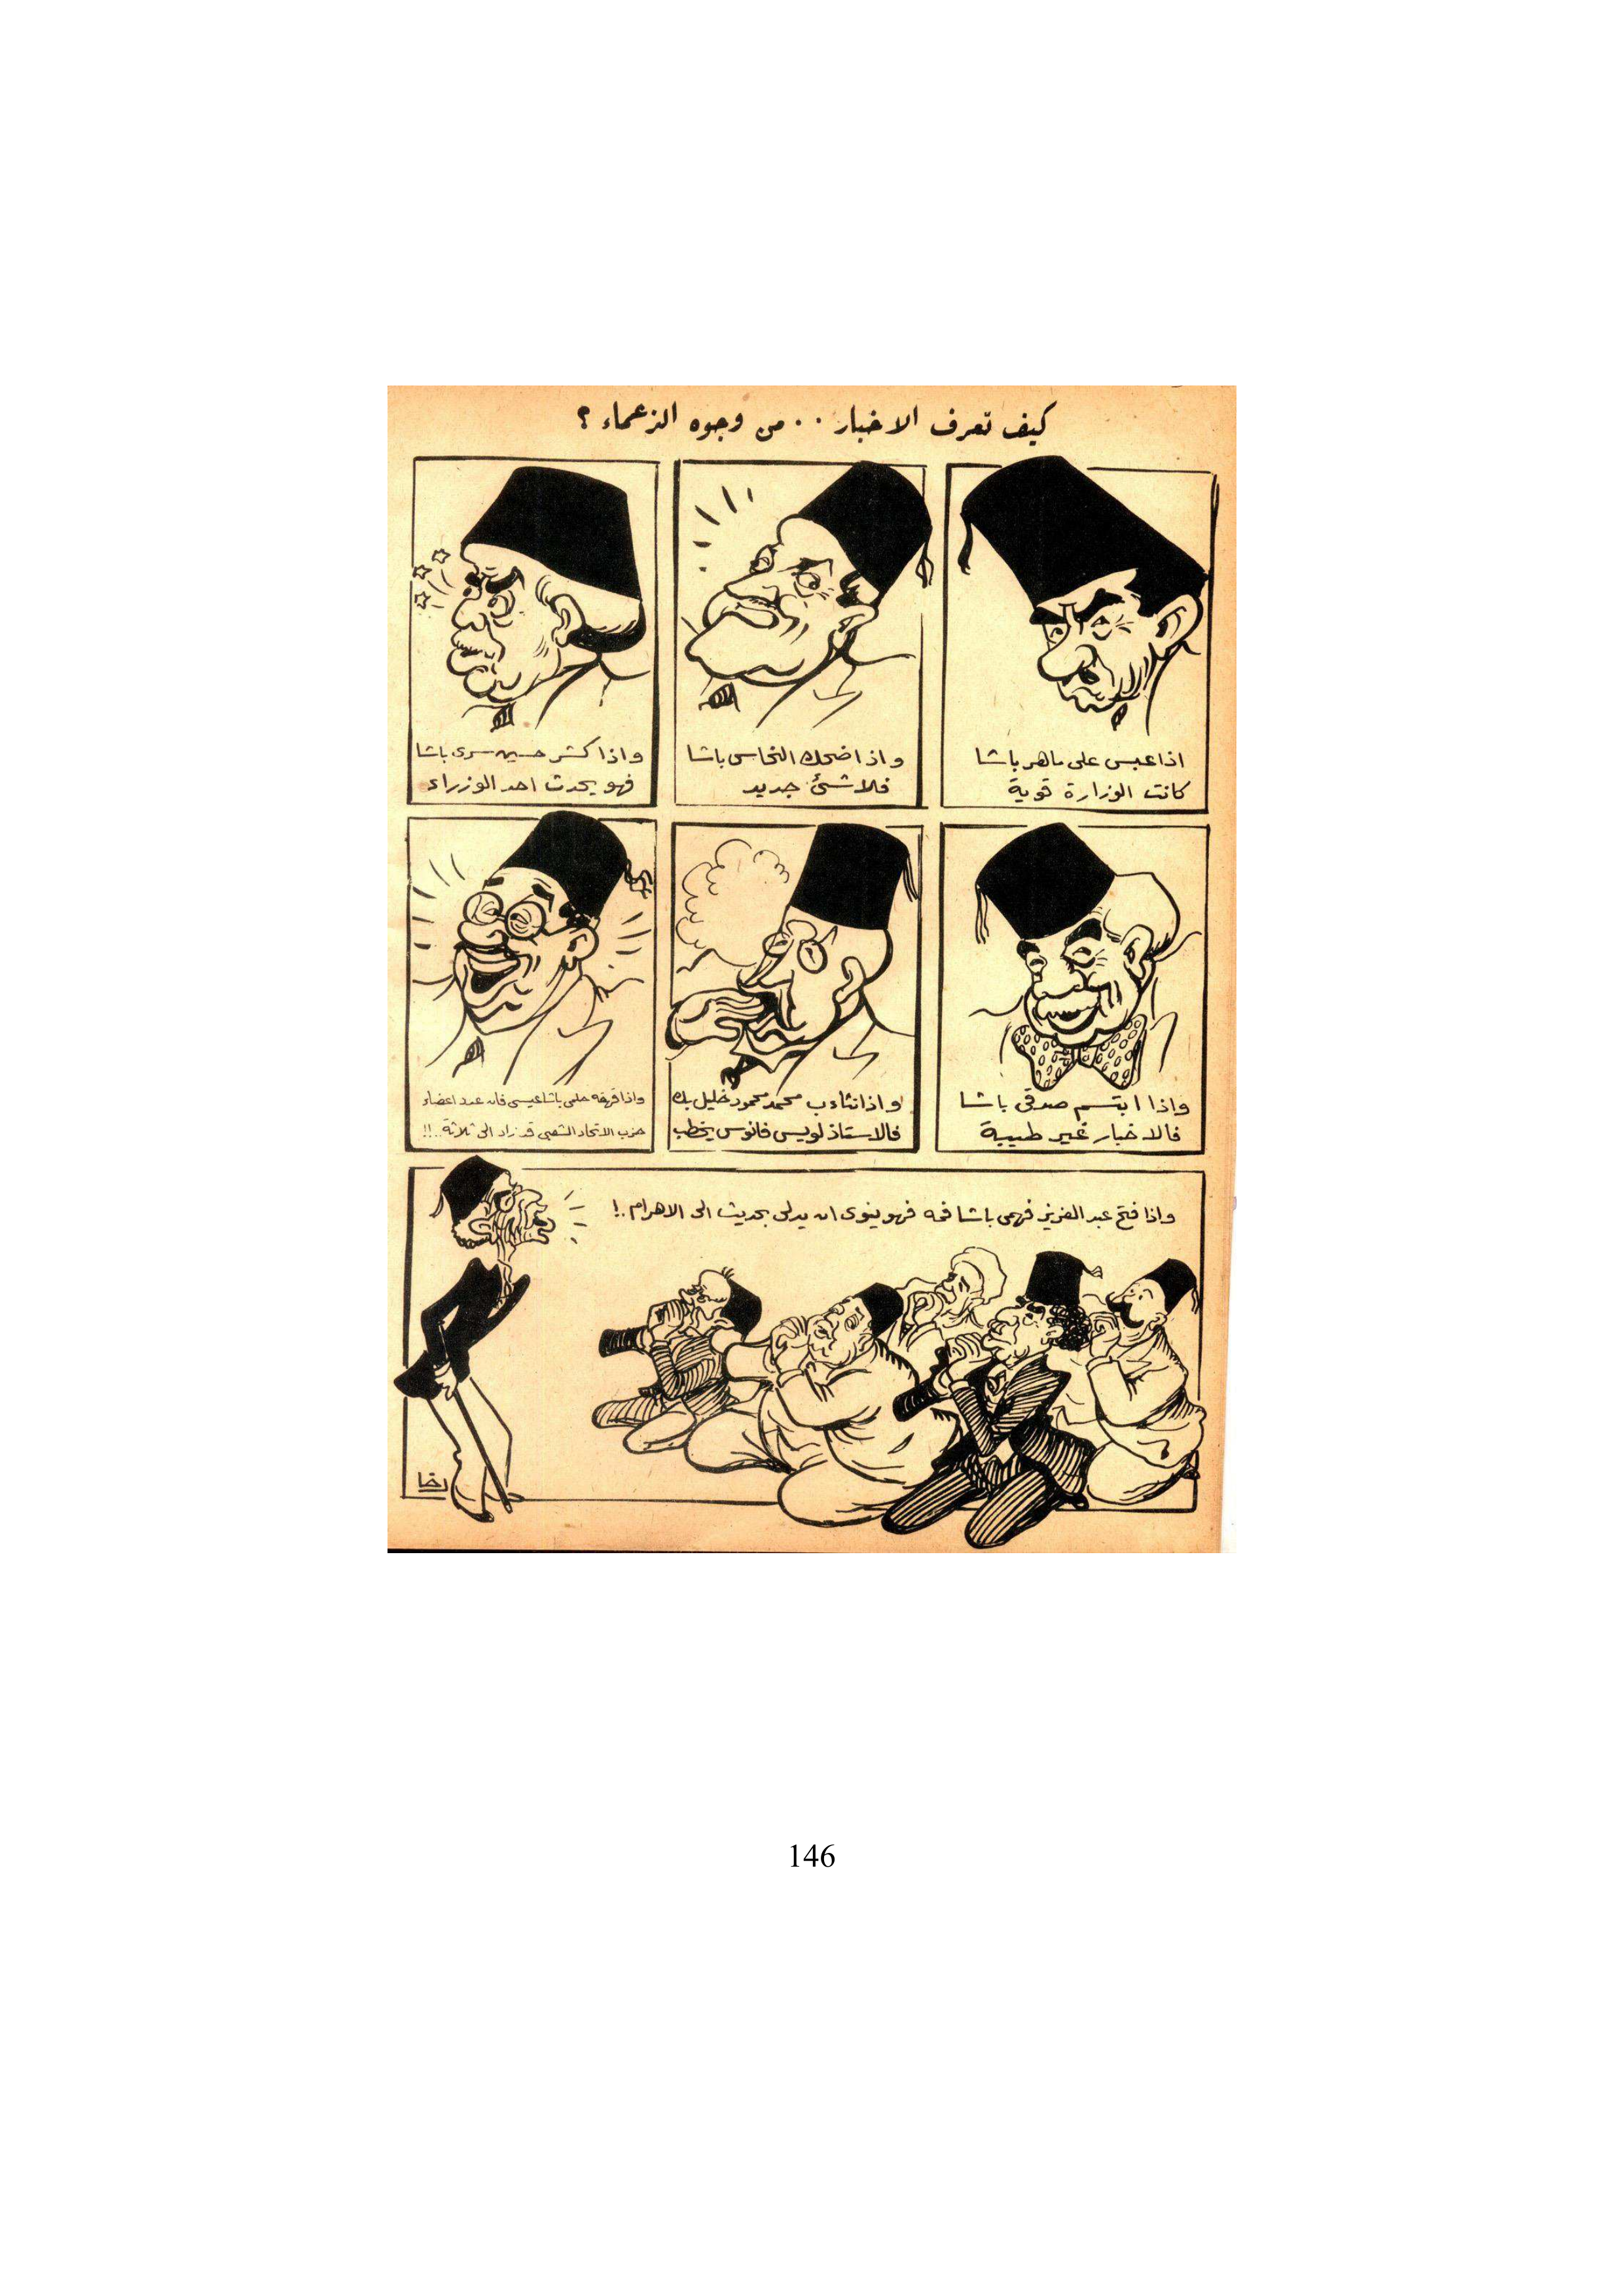 كيف تعرف الاخبار . . من وجوه الزعماء ؟
اذا عبس على ماهر باشا
كانت الوزارة قوية
واذا ضحك النحاس باشا
فلا شئ جديد
واذا كشر حسين سرى باشا
فهو يحدث احد الوزراء
واذا ابتسم صدقى باشا
فالاخبار غير طيبة
واذا تثاءب محمد محمود خليل بك
فالاستاذ لويس فانوس يخطب
واذا قهقه حلمى باشا عيسى فان عدد اعضاء
حزب الاتحاد الشعبى قد زاد الى ثلاثة..!!
واذا فتح عبد العزيز فهمى باشا فمه فهو ينوى ان يدلى بحديث الى الاهرام..!
رخا
146